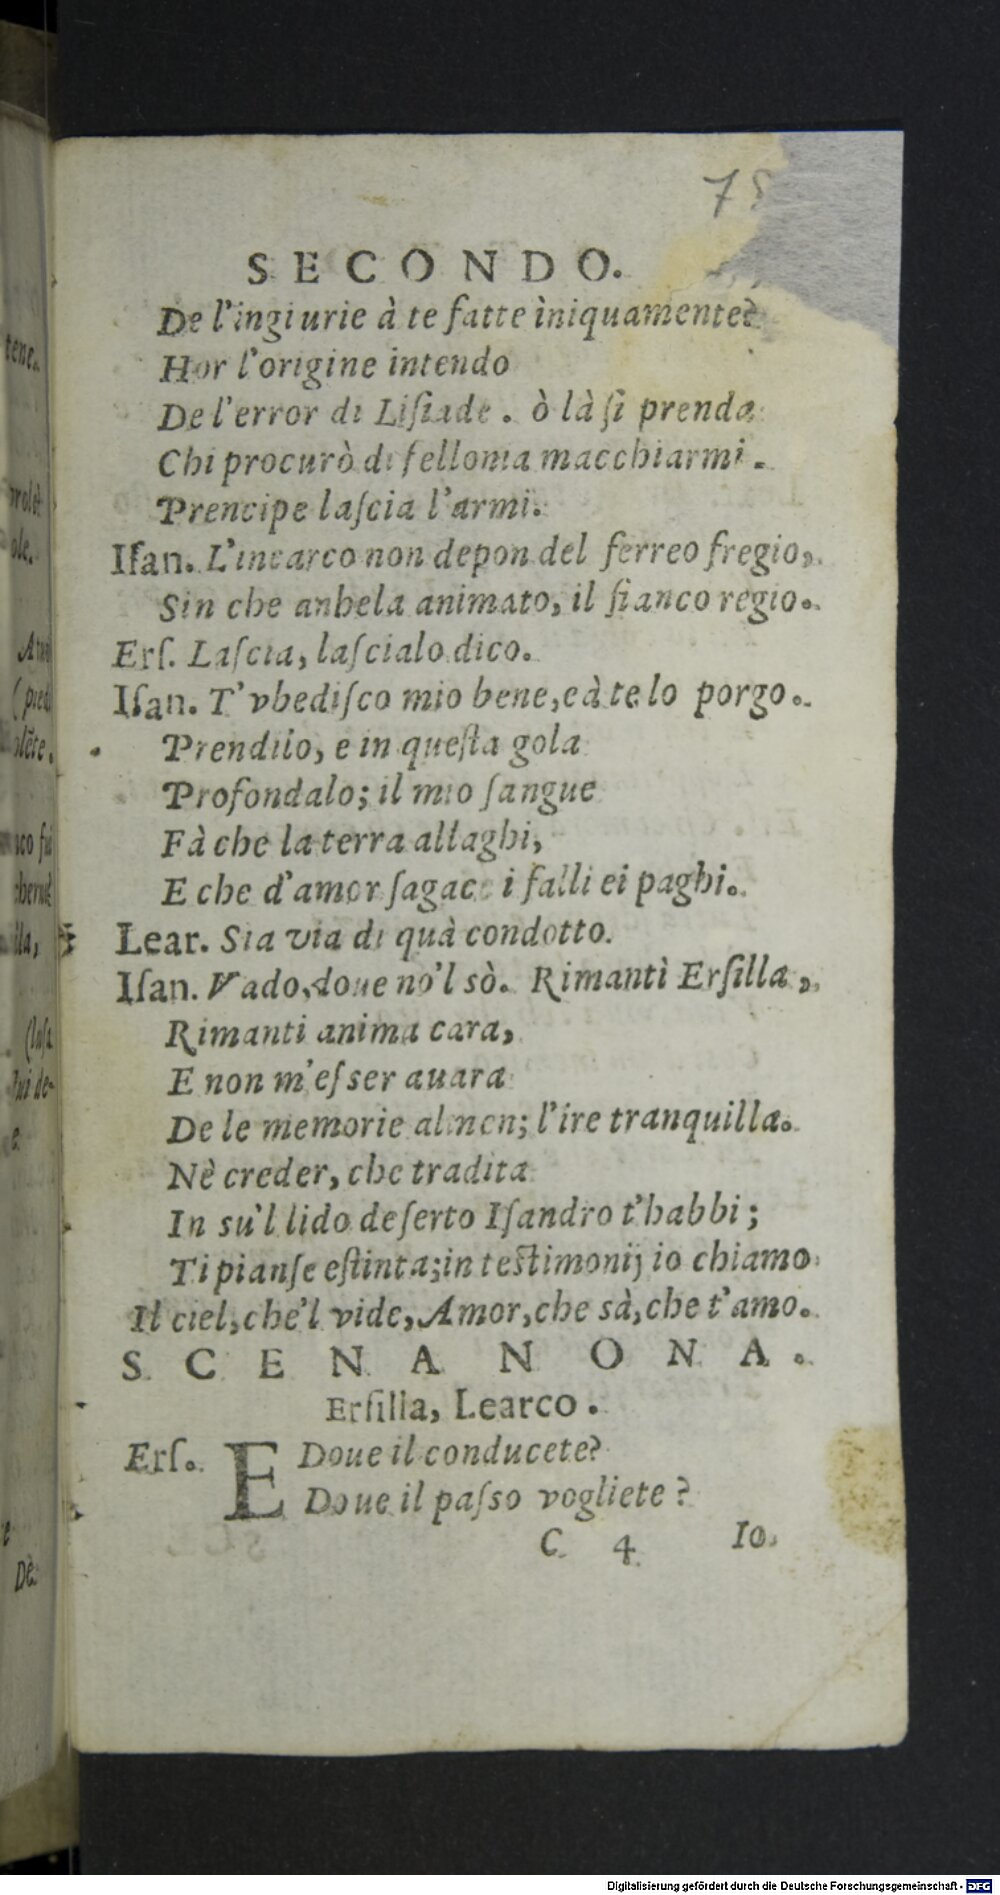 SECONDO.
De l'ingiurie à te fatte ìniquamente?
Hor l'origine intendo
De l'error di Liſiade. ò là ſi prenda
Chi procurò di fellonia macchiarmi.
Prencipe laſcia l'armi.
Iſan. L'incarco non depon del ferreo fregio,
Sin che anhela animato, il fianco regio.
Erſ. Laſcia, laſcialo dico.
Iſan. T'vbediſco mio bene, e à te lo porgo.
Prendilo, e in queſta gola
Profondalo; il mio ſangue
Fà che la terra allaghi,
E che d'amor ſagace i falli ei paghi.
Lear. Sia via di quà condotto.
Iſan. Vado, doue no'l sò. Rimantì Erſilla,
Rimanti anima cara,
E non m'eſser auara
De le memorie almen; l'ire tranquilla.
Nè creder, che tradita
In su'l lido deſerto Iſandro t'habbi;
Ti pianſe eſtinta; in teſtimonij io chiamo
Il ciel, che'l vide, Amor, che sà, che t'amo.
SCENA NONA.
Erſilla, Learco.
Erſ. E Doue il conducete?
Doue il paſso vogliete?
C 4 Io,
tene.
ole.
(pied
olẽte.
ila,
De
Digitalisierung gefördert durch die Deutsche Forschungsgemeinschaft - DFG